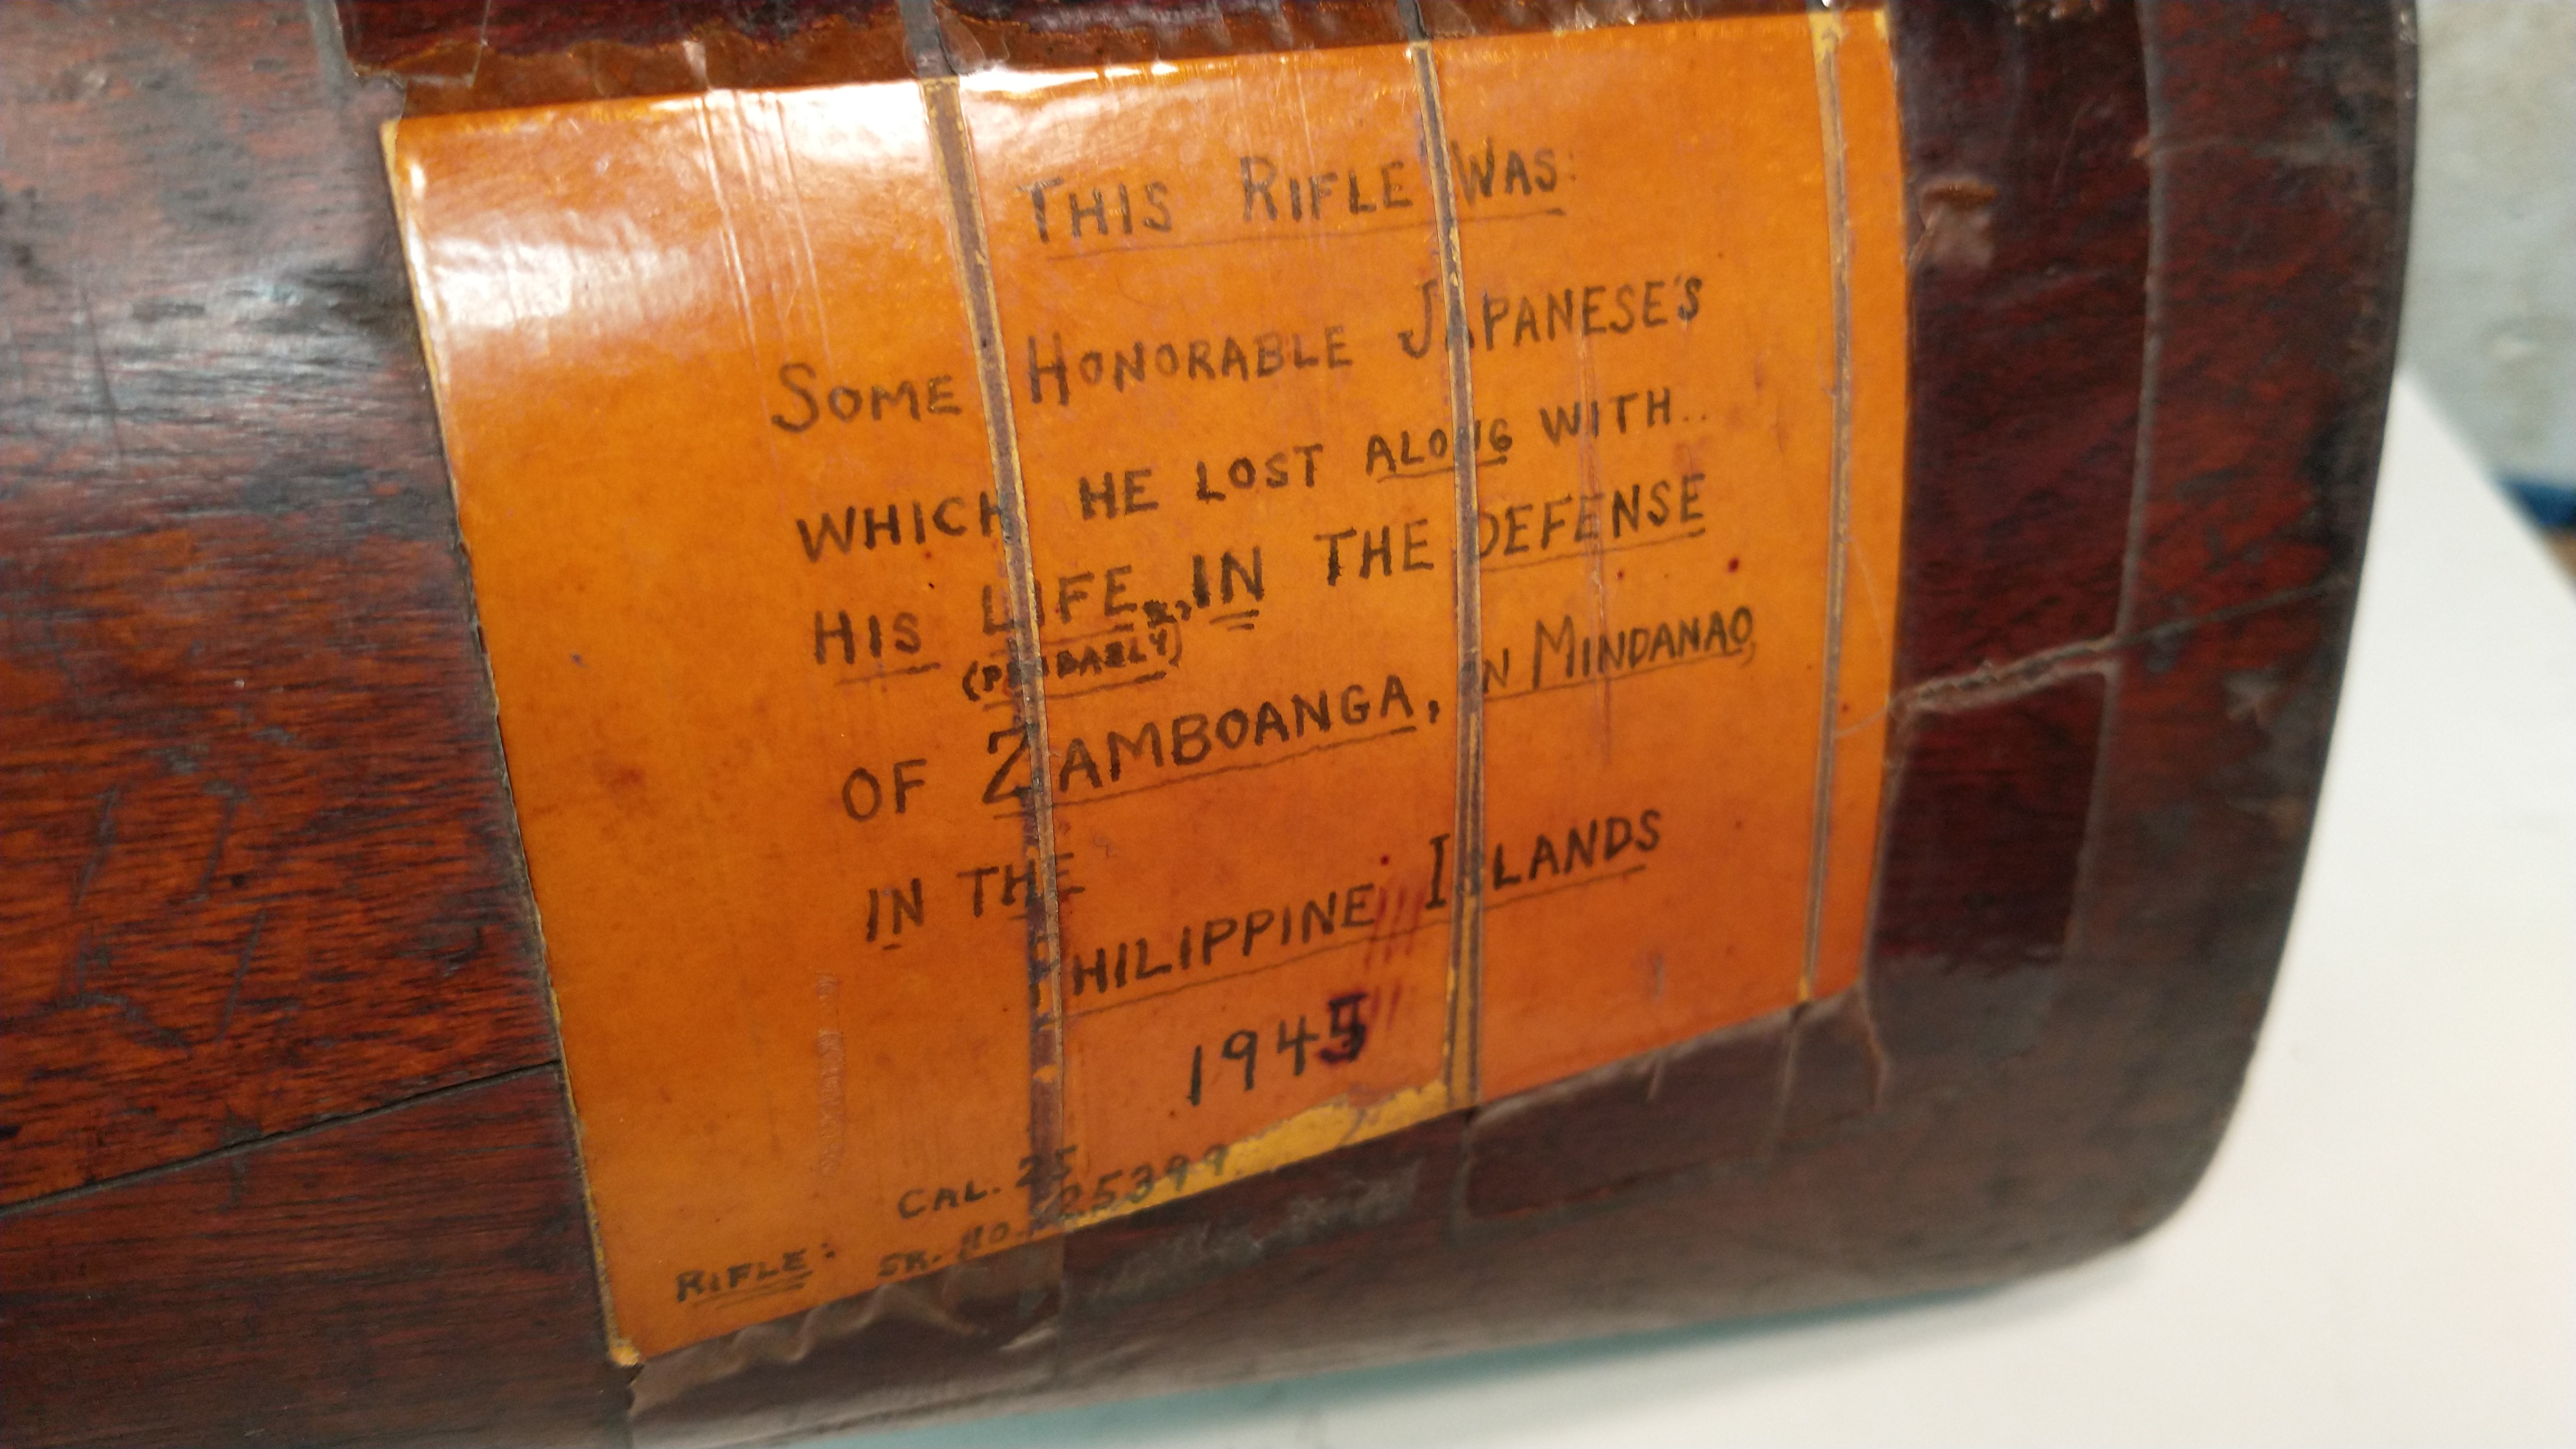 THIS RIFLE WAS:
SOME HONORABLE JAPANESE'S
WHICH HE LOST ALONG WITH..
HIS LIFE, IN THE DEFENSE
(PROBABLY)
OF ZAMBOANGA, ON MINDANAO,
IN THE
PHILIPPINE ISLANDS
1945
CAL. 25
RIFLE: SR. NO. 25399